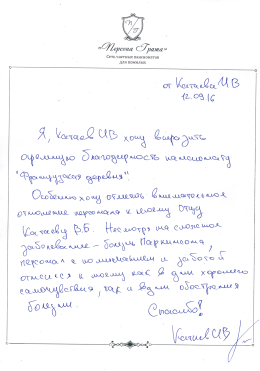 «Персона Грата»
Сеть частных пансионатов
для пожилых
от Катаева ИВ
12.09.16
Я, Катаев ИВ хочу выразить
огромную благодарность пансионату
"Французская деревня".
Особенно хочу отметить внимательное
отношение персонала к моему отцу
Катаеву В.Б. Несмотря на сложное
заболевание – болезнь Паркинсона,
персонал с пониманием и заботой
отнесся к моему как в дни хорошего
самочувствия, так и в дни обострения
болезни.
Спасибо!
Катаев ИВ